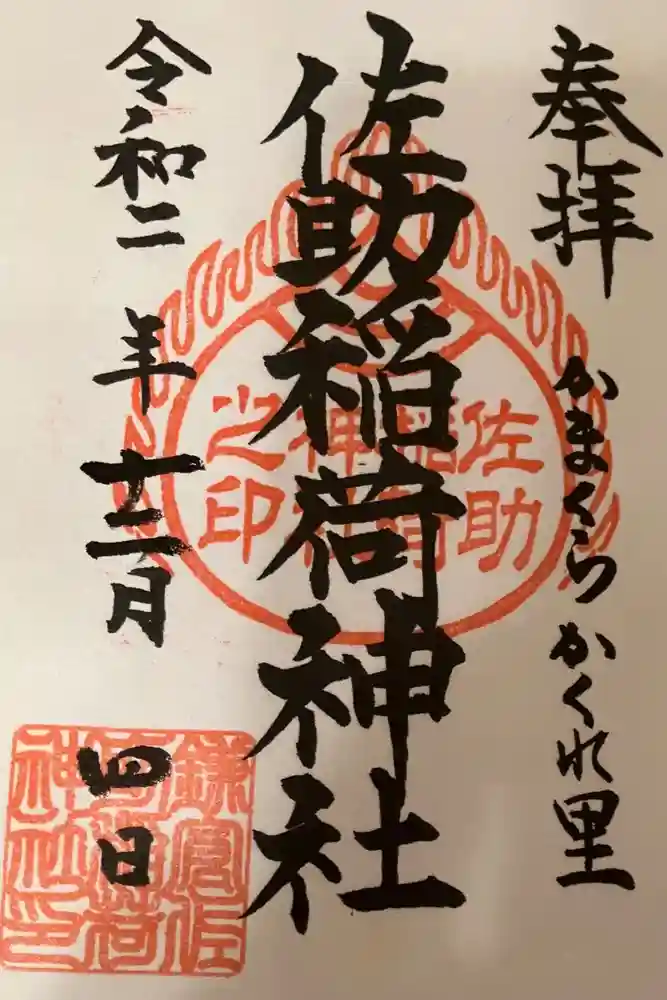 奉拝
かまくらかくれ里
佐助稲荷神社
佐助稲荷神社之印
令和二年十二月四日
鎌倉佐助稲荷神社印